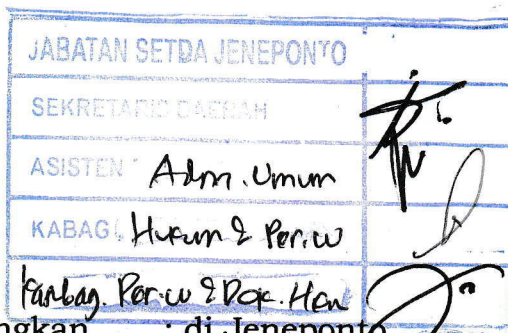 JABATAN SETDA JENEPONTO
SEKRETARIS DAERAH
ASISTEN Adm. Umum
KABAG. Hukum & Per.uu
Kasubag. Per.uu & Dok. Hkm
ngkan : di Jeneponto